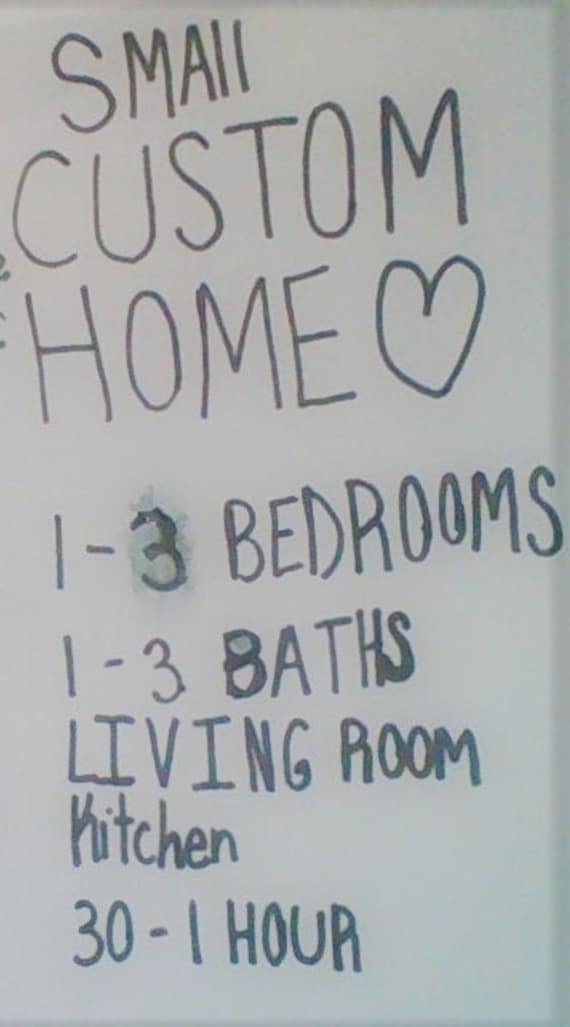 SMAll
CUSTOM
HOME♡
1-3 BEDROOMS
1-3 BATHS
LIVING ROOM
Kitchen
30-1 HOUR